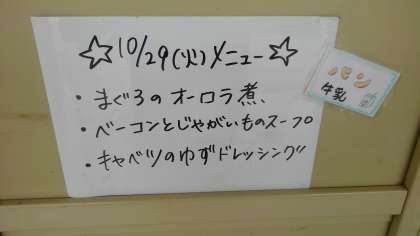 ☆10/29(火)メニュー☆
・まぐろのオーロラ煮、
・ベーコンとじゃがいものスープ
・キャベツのゆずドレッシング
パン
牛乳